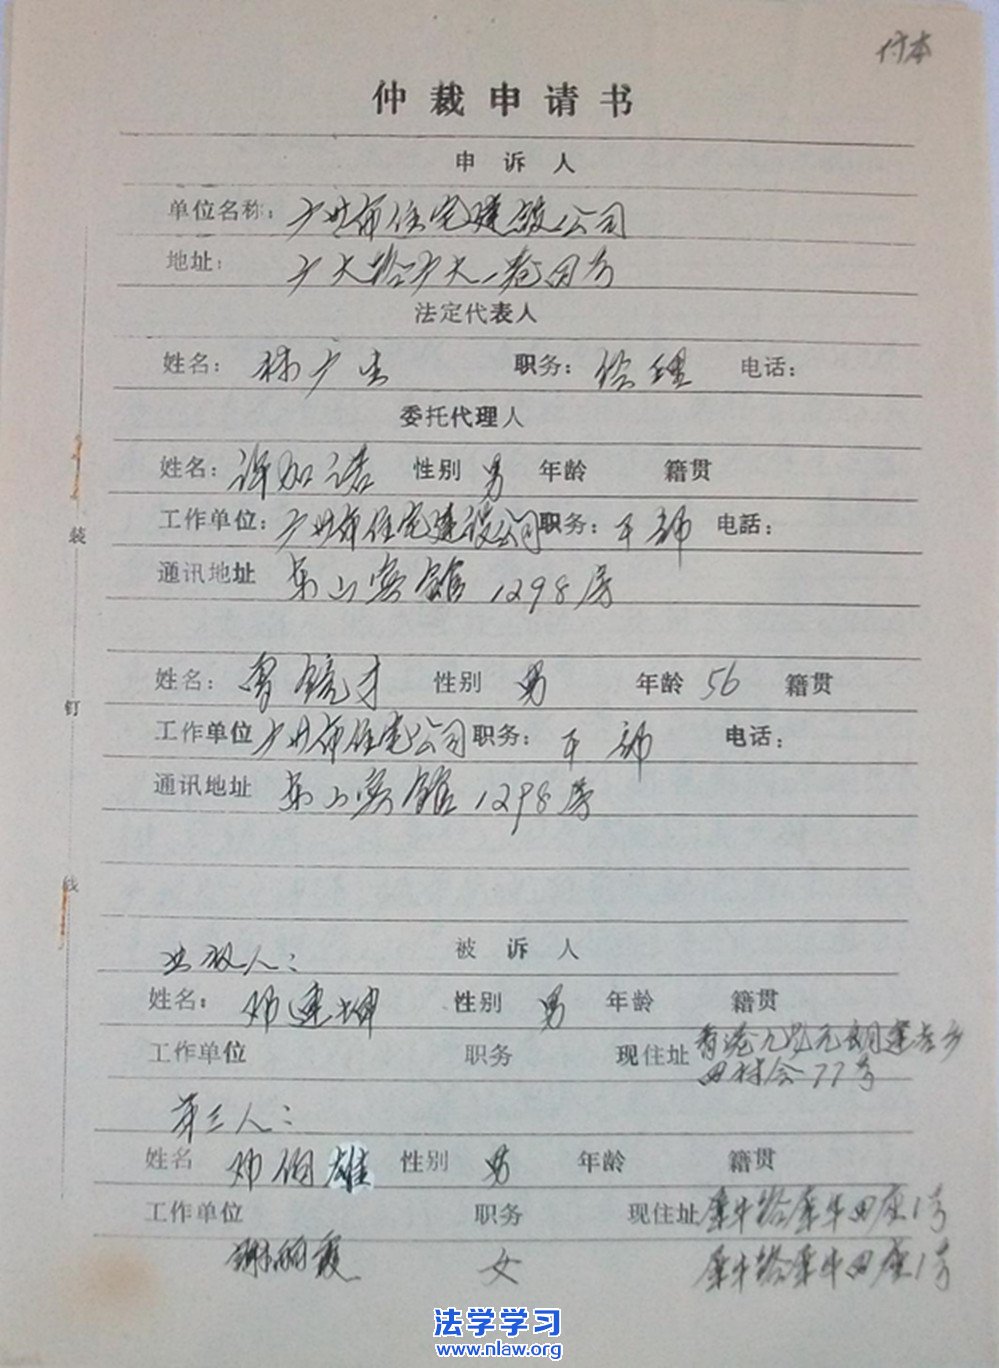 付本
仲裁申请书
申诉人
单位名称：广州市住宅建设公司
地址：广大路广大一巷四号
法定代表人
姓名：林广生 职务：经理 电话：
委托代理人
姓名：许加诺 性别 男 年龄 籍贯
工作单位：广州市住宅建设公司 职务：干部 电話：
通讯地址 东山宾馆1298房
姓名：曾镜才 性别 男 年龄 56 籍贯
工作单位 广州市住宅公司 职务：干部 电话：
通讯地址 东山宾馆1298房
被诉人
出租人：
姓名：邓建坤 性别 男 年龄 籍贯
工作单位 职务 现住址 香港九龙元朗
四村 77号
第三人：
姓名 邓伯雄 性别 男 年龄 籍贯
工作单位 职务 现住址 犀牛路犀牛四座1号
谢丽霞 女 犀牛路犀牛四座1号
装
钉
线
法学学习
www.nlaw.org